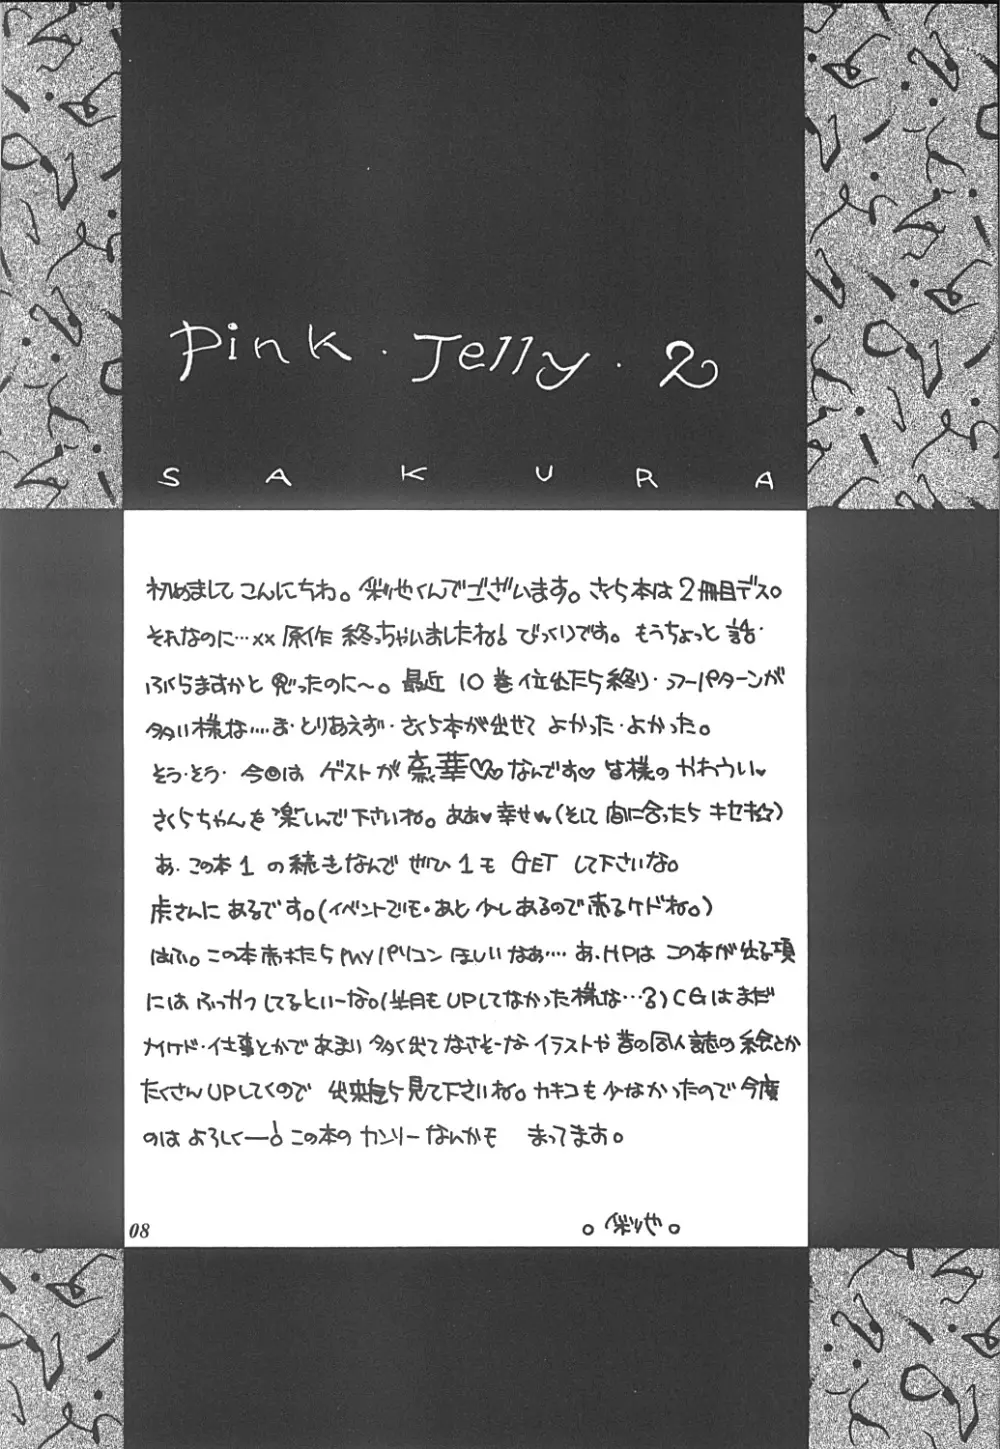 Pink・Jelly・2
SAKURA
初めまして こんにちわ。くんでございます。さくら本は2冊目デス。
それなのに…xx 原作 終っちゃいましたね! びっくりです。もうちょっと 話・
ふくらますかと 思ったのに〜。最近 10巻位出たら終り・ってパターンが
多い様な….ま・とりあえず・さくら本が出せて よかった・よかった。
そう・そう・今回は ゲストが豪華♡なんです♡ 皆様の かわうい♥
さくらちゃんを 楽しんで下さいね。ああ♥幸せ♥(そして 間に合ったら キセキ☆)
あ・この本1 の続きなんで ぜひ1も GET して下さいな。
虎さんに あるです。(イベントでも・あと 少しあるので売るケドね。)
はふ。この本売れたら MYパソコン ほしい なあ…. あ、HPは この本が出る頃
には ふっかつ してるといーな。(半月も UPしてなかった様な…)CGはまだ
ナイケド・仕事とかであまり 多く出て なさそーな イラストや 昔の同人誌の 絵とか
たくさんUPしてくので 出来たら見て下さいね。カキコも 少なかったので今度
のは よろしくー! この本の カンソーなんかも まってます。
08